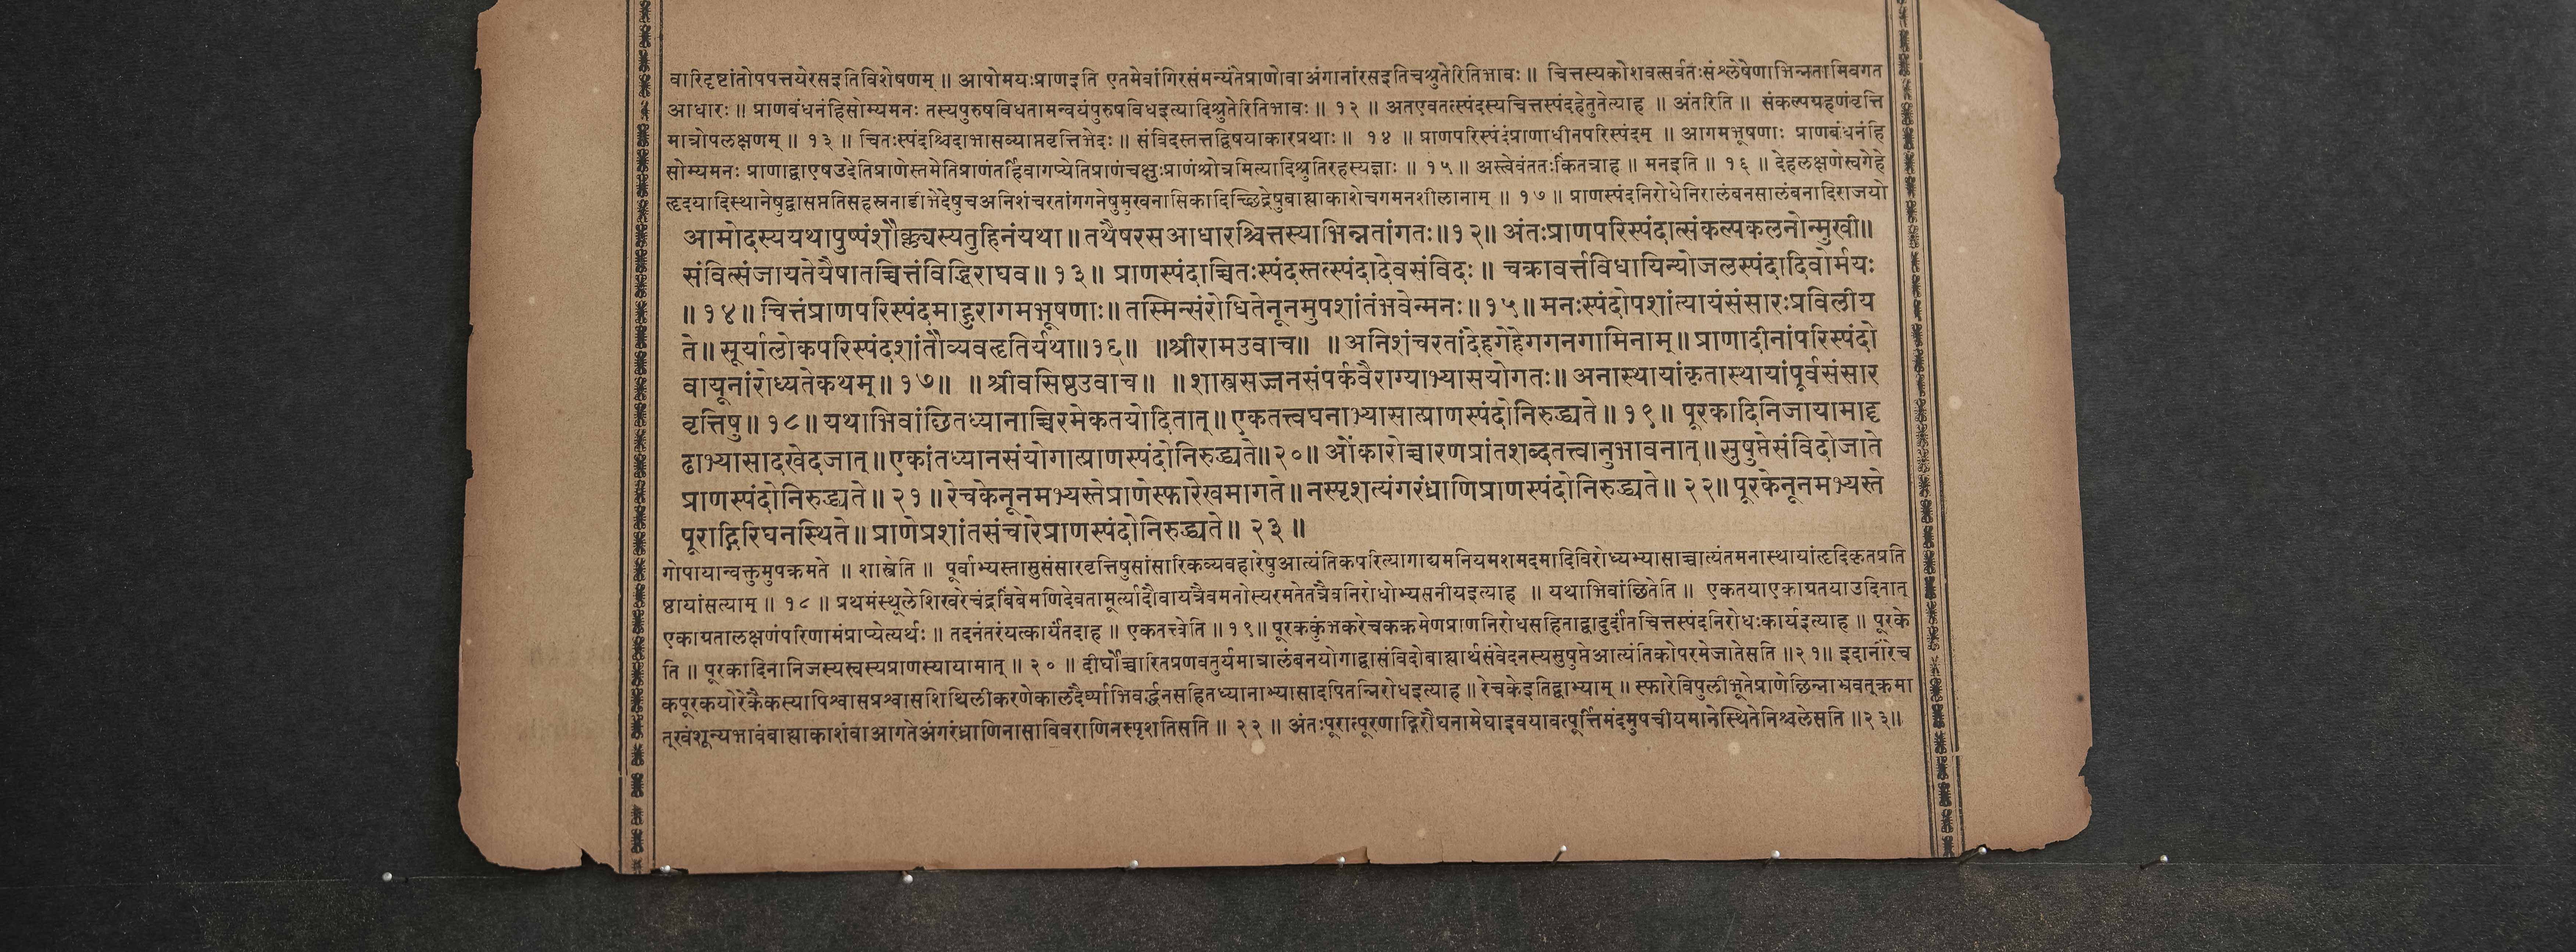 वारिदृष्टांतोपपत्तयेरसइतिविशेषणम् ॥ आपोमयःप्राणइति एतमेवांगिरसंमन्यंतेप्राणोवाअंगानांरसइतिचश्रुतेरितिभावः ॥ चित्तस्यकोशवत्सर्वतःसंश्लेषेणाभिन्नतामिवगत
आधारः ॥ प्राणबंधनंहिसोम्यमनः तस्यपुरुषविधतामन्वयंपुरुषविधइत्यादिश्रुतेरितिभावः ॥ १२ ॥ अतएवतत्स्पंदस्यचित्तस्पंदहेतुतेत्याह ॥ अंतरिति ॥ संकल्पग्रहणंवृत्ति
मात्रोपलक्षणम् ॥ १३ ॥ चितःस्पंदश्चिदाभासव्याप्तवृत्तिभेदः ॥ संविदस्तत्तद्विषयाकारप्रथाः ॥ १४ ॥ प्राणपरिस्पंदंप्राणाधीनपरिस्पंदम् ॥ आगमभूषणाः प्राणबंधनंहि
सोम्यमनः प्राणाद्वाएषउदेतिप्राणेस्तमेतिप्राणंतर्हिवागप्येतिप्राणंचक्षुःप्राणंश्रोत्रमित्यादिश्रुतिरहस्यज्ञाः ॥ १५ ॥ अस्त्वेवंततःकिंतत्राह ॥ मनइति ॥ १६ ॥ देहलक्षणेस्वगेहे
हृदयादिस्थानेषुद्वासप्ततिसहस्रनाडीभेदेषुचअनिशंचरतांगगनेषुमुखनासिकादिच्छिद्रेषुबाह्याकाशेचगमनशीलानाम् ॥ १७ ॥ प्राणस्पंदनिरोधेनिरालंबनसालंबनादिराजयो
आमोदस्ययथापुष्पंशौक्ल्यस्यतुहिनंयथा ॥ तथैषरसआधारश्चित्तस्याभिन्नतांगतः ॥१२॥ अंतःप्राणपरिस्पंदात्संकल्पकलनोन्मुखी ॥
संवित्संजायतेयैषातच्चित्तंविद्धिराघव ॥ १३ ॥ प्राणस्पंदाच्चितःस्पंदस्तत्स्पंदादेवसंविदः ॥ चक्रावर्त्तविधायिन्योजलस्पंदादिवोर्मयः
॥ १४ ॥ चित्तंप्राणपरिस्पंदमाहुरागमभूषणाः ॥ तस्मिन्संरोधितेनूनमुपशांतंभवेन्मनः ॥ १५ ॥ मनःस्पंदोपशांत्यायंसंसारःप्रविलीय
ते ॥ सूर्यालोकपरिस्पंदशांतौव्यवहृतिर्यथा ॥१६॥ ॥श्रीरामउवाच॥ ॥ अनिशंचरतांदेहगेहेगगनगामिनाम् ॥ प्राणादीनांपरिस्पंदो
वायूनांरोध्यतेकथम् ॥ १७ ॥ ॥ श्रीवसिष्ठउवाच ॥ ॥ शास्त्रसज्जनसंपर्कवैराग्याभ्यासयोगतः ॥ अनास्थायांकृतास्थायांपूर्वसंसार
वृत्तिषु ॥ १८ ॥ यथाभिवांछितध्यानाच्चिरमेकतयोदितात् ॥ एकतत्त्वघनाभ्यासात्प्राणस्पंदोनिरुद्ध्यते ॥ १९ ॥ पूरकादिनिजायामादृ
ढाभ्यासादखेदजात् ॥ एकांतध्यानसंयोगात्प्राणस्पंदोनिरुद्ध्यते ॥२०॥ ओंकारोच्चारणप्रांतशब्दतत्त्वानुभावनात् ॥ सुषुप्तेसंविदोजाते
प्राणस्पंदोनिरुद्ध्यते ॥ २१ ॥ रेचकेनूनमभ्यस्तेप्राणेस्फारेखमागते ॥ नस्पृशत्यंगरंध्राणिप्राणस्पंदोनिरुद्ध्यते ॥ २२ ॥ पूरकेनूनमभ्यस्ते
पूराद्गिरिघनस्थिते ॥ प्राणेप्रशांतसंचारेप्राणस्पंदोनिरुद्ध्यते ॥ २३ ॥
गोपायान्वक्तुमुपक्रमते ॥ शास्त्रेति ॥ पूर्वाभ्यस्तासुसंसारवृत्तिषुसांसारिकव्यवहारेषुआत्यंतिकपरित्यागाद्यमनियमशमदमादिविरोध्यभ्यासाच्चात्यंतमनास्थायांहृदिकृतप्रति
ष्ठायांसत्याम् ॥ १८ ॥ प्रथमंस्थूलेशिखरेचंद्रबिंबेमणिदेवतामूर्त्यादौवायत्रैवमनोस्यरमतेतत्रैवनिरोधोभ्यसनीयइत्याह ॥ यथाभिवांछितेति ॥ एकतयाएकाग्रतयाउदितात्
एकाग्रतालक्षणंपरिणामंप्राप्येत्यर्थः ॥ तदनंतरंयत्कार्यंतदाह ॥ एकतत्त्वेति ॥ १९ ॥ पूरककुंभकरेचकक्रमेणप्राणनिरोधसहिताद्वादुर्दांतचित्तस्पंदनिरोधःकार्यइत्याह ॥ पूरके
ति ॥ पूरकादिनानिजस्यस्वस्यप्राणस्यायामात् ॥ २० ॥ दीर्घोच्चारितप्रणवतुर्यमात्रालंबनयोगाद्वासंविदोबाह्यार्थसंवेदनस्यसुषुप्तेआत्यंतिकोपरमेजातेसति ॥२१॥ इदानींरेच
कपूरकयोरेकैकस्यापिश्वासप्रश्वासशिथिलीकरणेकालदैर्घ्याभिवर्द्धनसहितध्यानाभ्यासादपितन्निरोधइत्याह ॥ रेचकेइतिद्वाभ्याम् ॥ स्फारेविपुलीभूतेप्राणेछिन्नाभ्रवत्क्रमा
त्खंशून्यभावंबाह्याकाशंवाआगतेअंगरंध्राणिनासाविवराणिनस्पृशतिसति ॥ २२ ॥ अंतःपूरात्पूरणाद्गिरौघनामेघाइवयावत्पूर्त्तिमंदमुपचीयमानेस्थितेनिश्चलेसति ॥२३॥